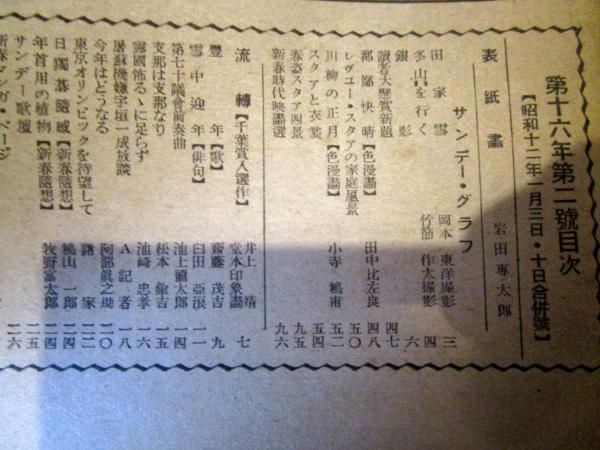 第十六年第二號目次
【昭和十二年一月三日・十日合併號】
表紙畫 岩田專太郎
サンデー・グラフ
田家雪 岡本東洋撮影 三
冬山を行く 竹節作太撮影 四
銀影 六
讀者大懸賞新題 四七
都鄙快晴【色漫畵】 田中比左良 四八
レヴユー・スタアの家庭風景 五〇
川柳の正月【色漫畵】 小寺鳩甫 五二
スタアと衣裳 五四
春姿スタア四景 九五
新春時代映畵選 九六
流轉【千葉賞入選作】 井上靖 堂本印象畵 七
豐年【歌】 齋藤茂吉 九
雪中迎年【俳句】 臼田亞浪 一一
第七十議會前奏曲 池上 太郎 一四
支那は支那なり 松本鎗吉 一五
露國怖るゝに足らず 池崎忠孝 一六
屠蘇機嫌宇垣一成放談 A記者 一八
今年はどうなる 阿部眞之助 二〇
東京オリンピックを待望して 諸家 二二
日獨碁隨感【新春隨想】 鳩山一郎 二四
年首用の植物【新春隨想】 牧野富太郎 二四
サンデー歌壇 二五
新春マンガ・ページ 二六